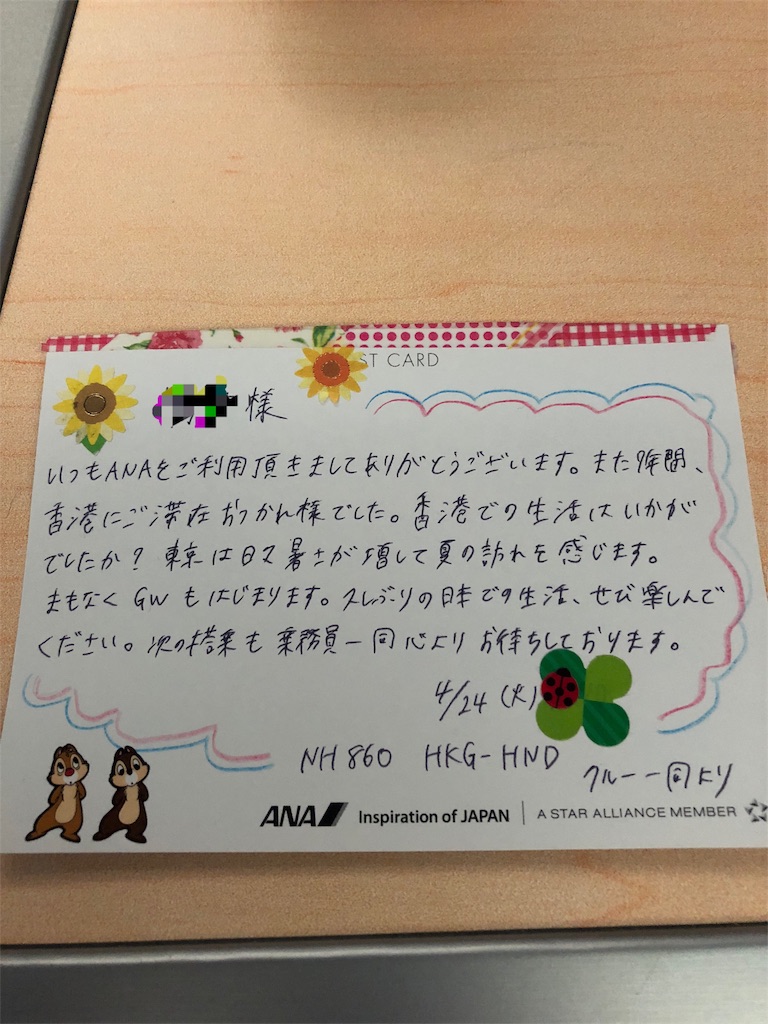 ST CARD
様
いつもANAをご利用頂きましてありがとうございます。また9年間、
香港にご滞在おつかれ様でした。香港での生活はいかが
でしたか？ 東京は日々暑さが増して夏の訪れを感じます。
まもなくGWもはじまります。久しぶりの日本での生活、ぜひ楽しんで
ください。次の搭乗も乗務員一同心よりお待ちしております。
4/24 (火)
NH860 HKG-HND
クルー一同より
ANA Inspiration of JAPAN A STAR ALLIANCE MEMBER